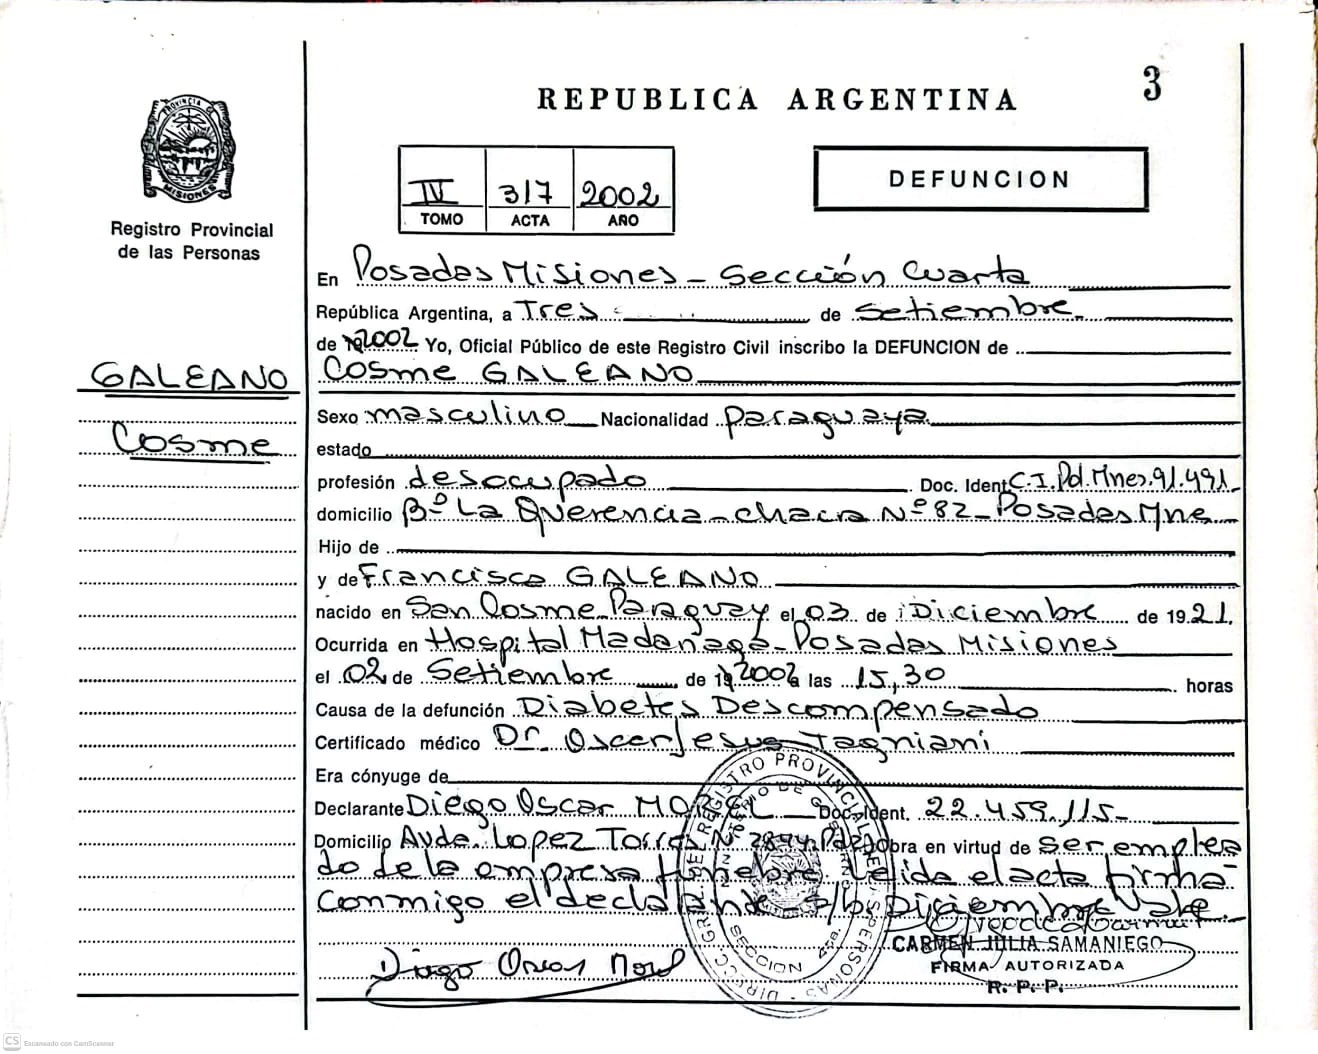 3
REPUBLICA ARGENTINA
PROVINCIA DE
MISIONES
Registro Provincial
de las Personas
IV 317 2002
TOMO ACTA AÑO
DEFUNCION
En Posadas Misiones - Sección Cuarta
República Argentina, a Tres de Setiembre
de 2002 Yo, Oficial Público de este Registro Civil inscribo la DEFUNCION de
GALEANO
Cosme GALEANO
Sexo masculino Nacionalidad Paraguaya
Cosme
estado
profesión desocupado Doc. Ident. C.I.Pol.Mnes.91.491
domicilio Bº La Querencia - chacra Nº 82 - Posadas Mne
Hijo de
y de Francisca GALEANO
nacido en San Cosme Paraguay el 03 de Diciembre de 1921.
Ocurrida en Hospital Madariaga - Posadas Misiones
el 02 de Setiembre de 2002 a las 15,30 horas
Causa de la defunción Diabetes Descompensado
Certificado médico Dr. Oscar Jesus
Era cónyuge de
Declarante Diego Oscar MOREL Doc. Ident. 22.459.115-
Domicilio Avda. Lopez Torres Nº Obra en virtud de ser emplea
do de la empresa funebre. Leida el acta firma
conmigo el declarante - s/b: Diciembre Vale
Diego Oscar Morel
CARMEN JULIA SAMANIEGO
FIRMA AUTORIZADA
R. P. P.
DIRECC. GRAL. DE REGISTRO PROVINCIAL DE LAS PERSONAS
MINISTERIO DE GOBIERNO
SECCION 4ta.
CS Escaneado con CamScanner